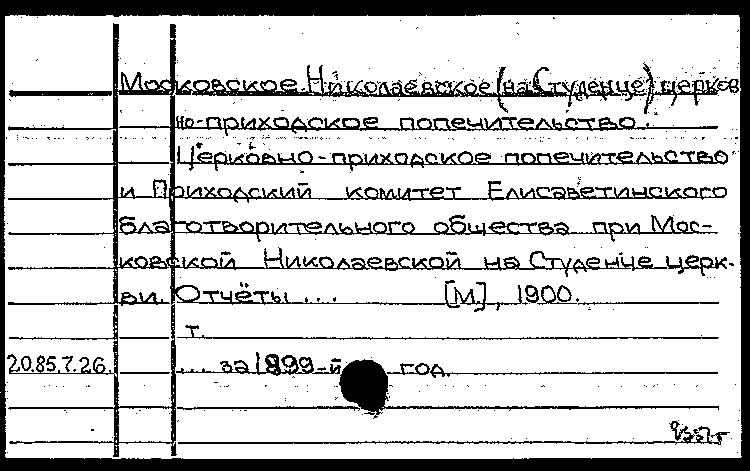 Московское Николаевское (на Студенце) церков
но-приходское попечительство.
Церковно-приходское попечительство
и Приходский комитет Елисаветинского
благотворительного общества при Мос-
ковской Николаевской на Студенце церк-
ви. Отчёты ... [М.], 1900.
т.
20.85.7.26. ... за 1899-й год.